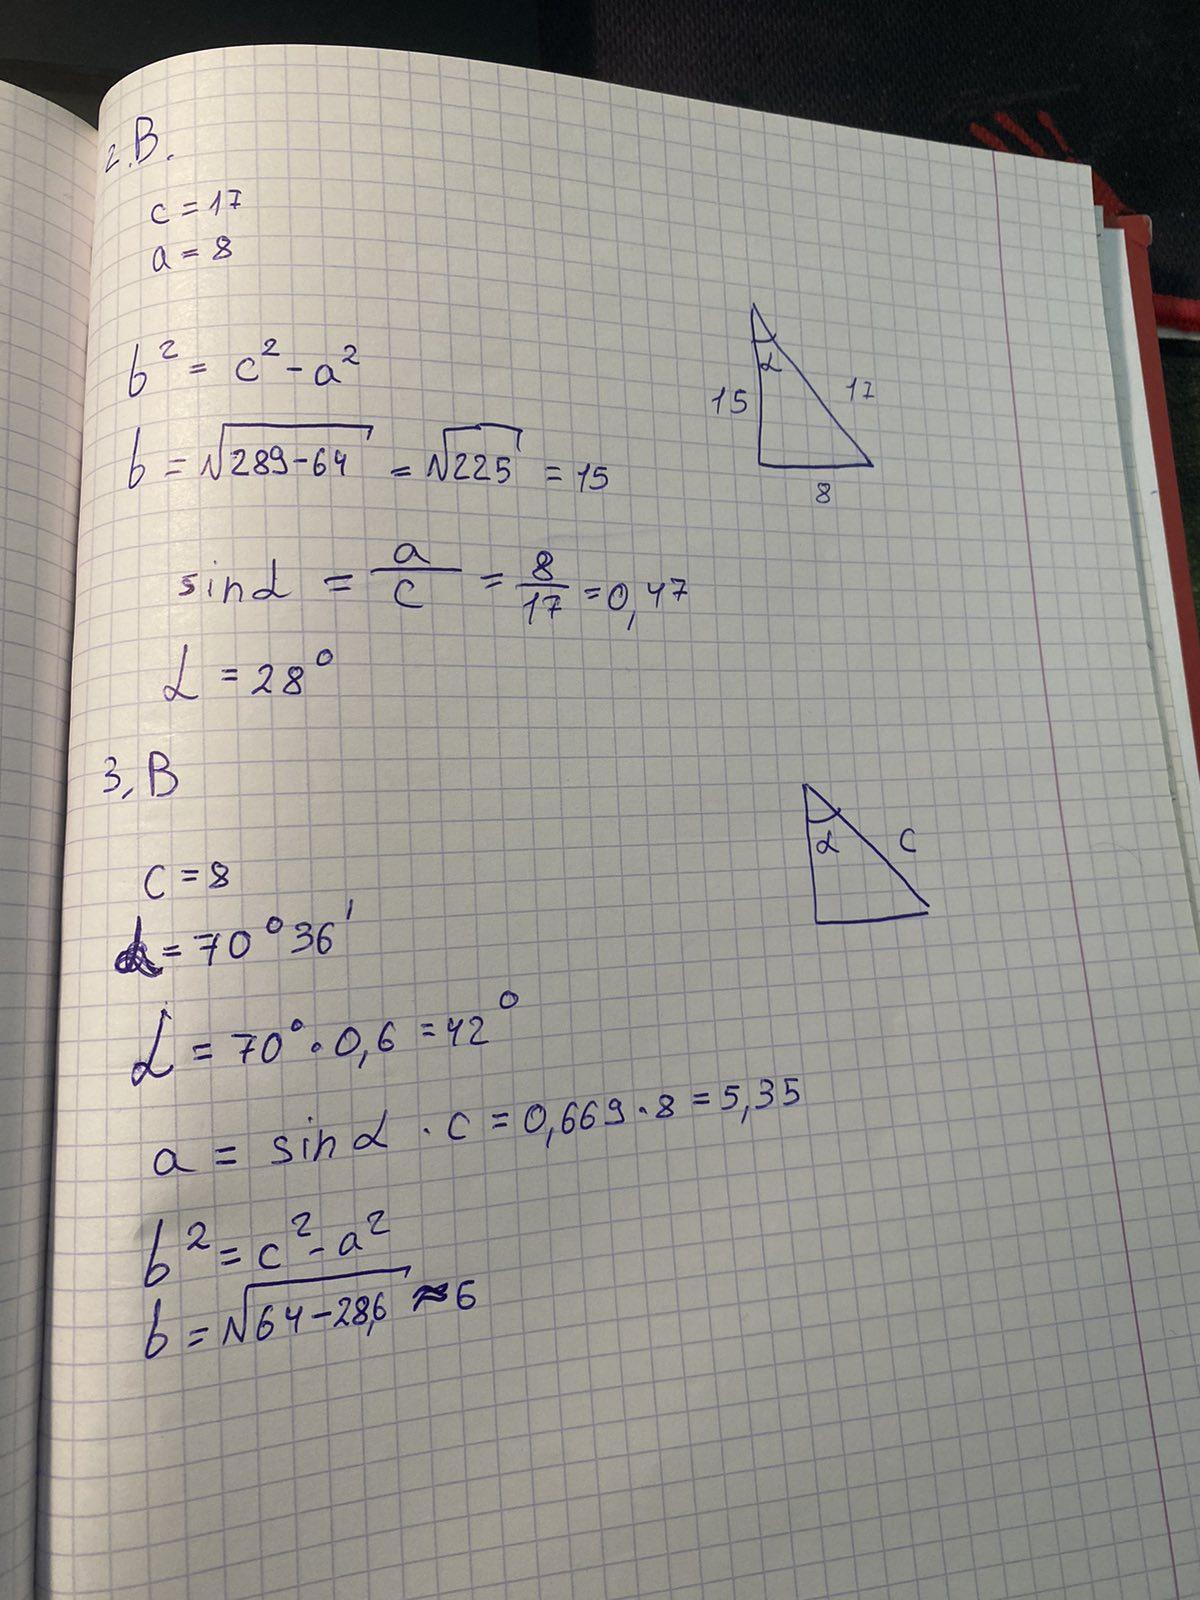 2.B.
c = 17
a = 8
b² = c² - a²
b = √289-64 = √225 = 15
sin α = a/c = 8/17 = 0,47
α = 28°
α
15
17
8
3, B
c = 8
α = 70° 36'
α = 70° · 0,6 = 42°
a = sin α · c = 0,669 · 8 = 5,35
b² = c² - a²
b = √64-28,6 ≈ 6
α
c